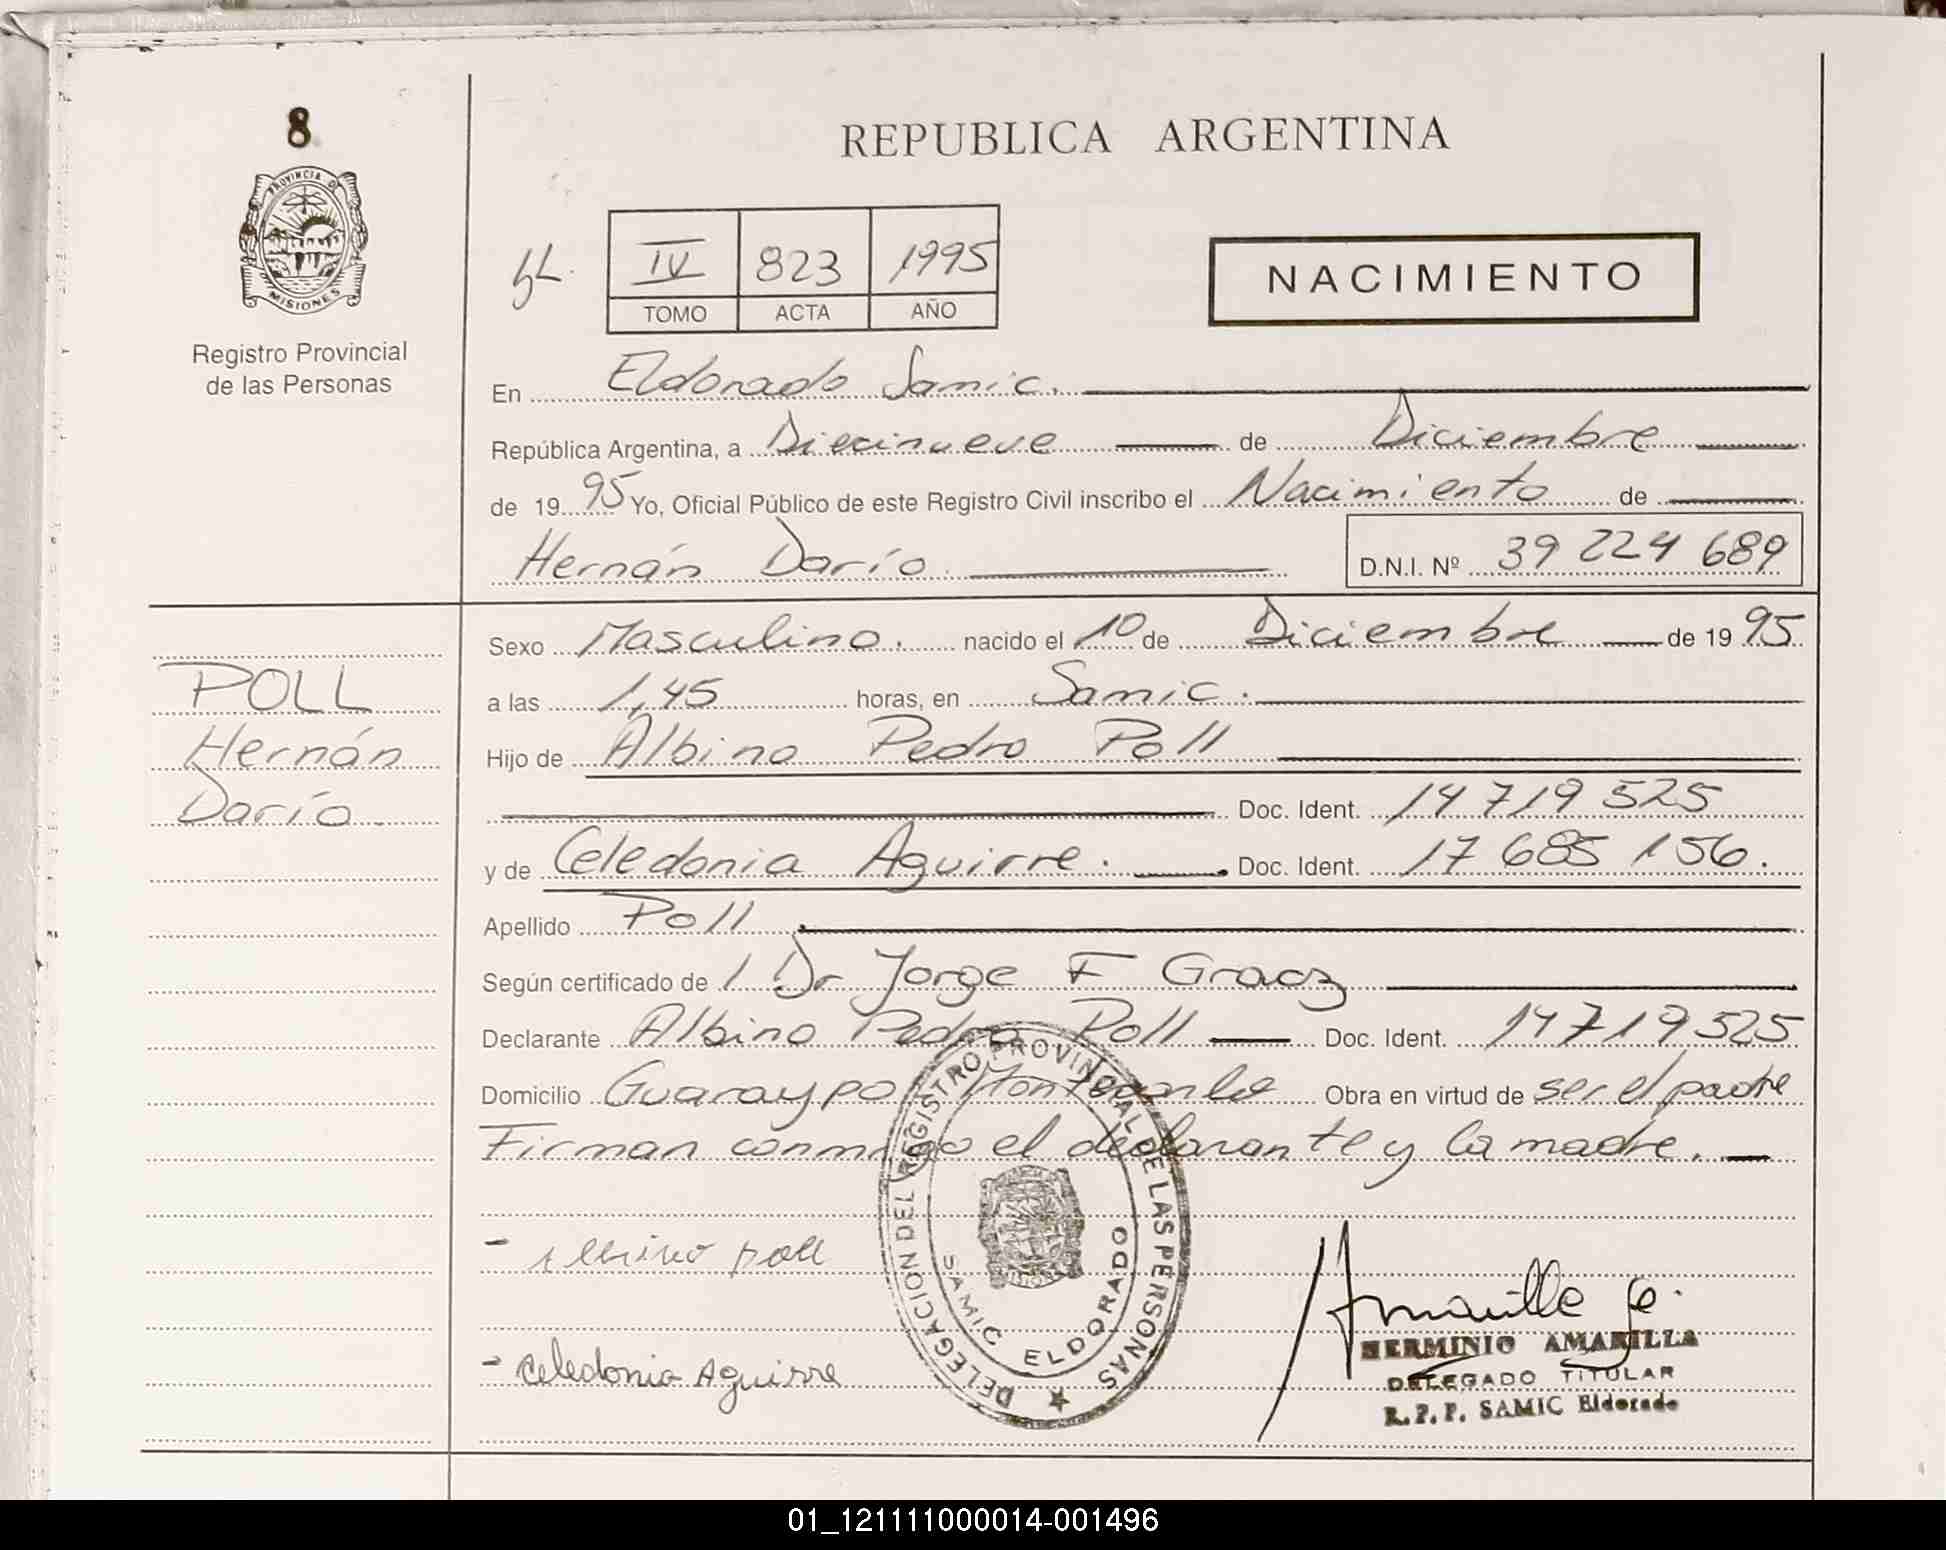 8
PROVINCIA DE
MISIONES
Registro Provincial
de las Personas
REPUBLICA ARGENTINA
IV 823 1995
TOMO ACTA AÑO
NACIMIENTO
En Eldorado Samic.
República Argentina, a Diecinueve de Diciembre
de 1995 Yo, Oficial Público de este Registro Civil inscribo el Nacimiento de
Hernán Darío D.N.I. Nº 39 224 689
Sexo Masculino. nacido el 10 de Diciembre de 1995
a las 1,45 horas, en Samic.
Hijo de Albino Pedro Poll
Doc. Ident. 14 719 525
y de Celedonia Aguirre. Doc. Ident. 17 685 156.
Apellido Poll
Según certificado de Dr Jorge F
Declarante Albino Pedro Poll Doc. Ident. 14719525
Domicilio Guaraypo Obra en virtud de ser el padre
Firman conmigo el declarante y la madre.
POLL
Hernán
Darío.
- Albino poll
- Celedonia Aguirre
DELEGACION DEL REGISTRO PROVINCIAL DE LAS PERSONAS
SAMIC ELDORADO
HERMINIO AMARILLA
DELEGADO TITULAR
R.P.P. SAMIC Eldorado
01_121111000014-001496